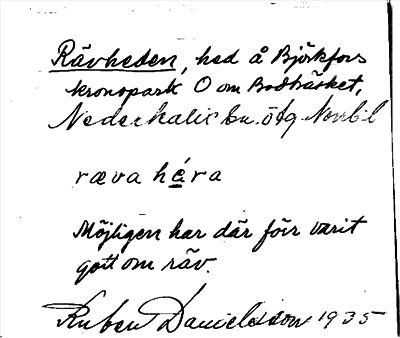 Rävheden, hed å Björkfors
kronopark O om Bodträsket,
Nederkalix sn. ötg. Norrb. l
ræva héra
Möjligen har där förr varit
gott om räv.
Ruben Danielsson 1935